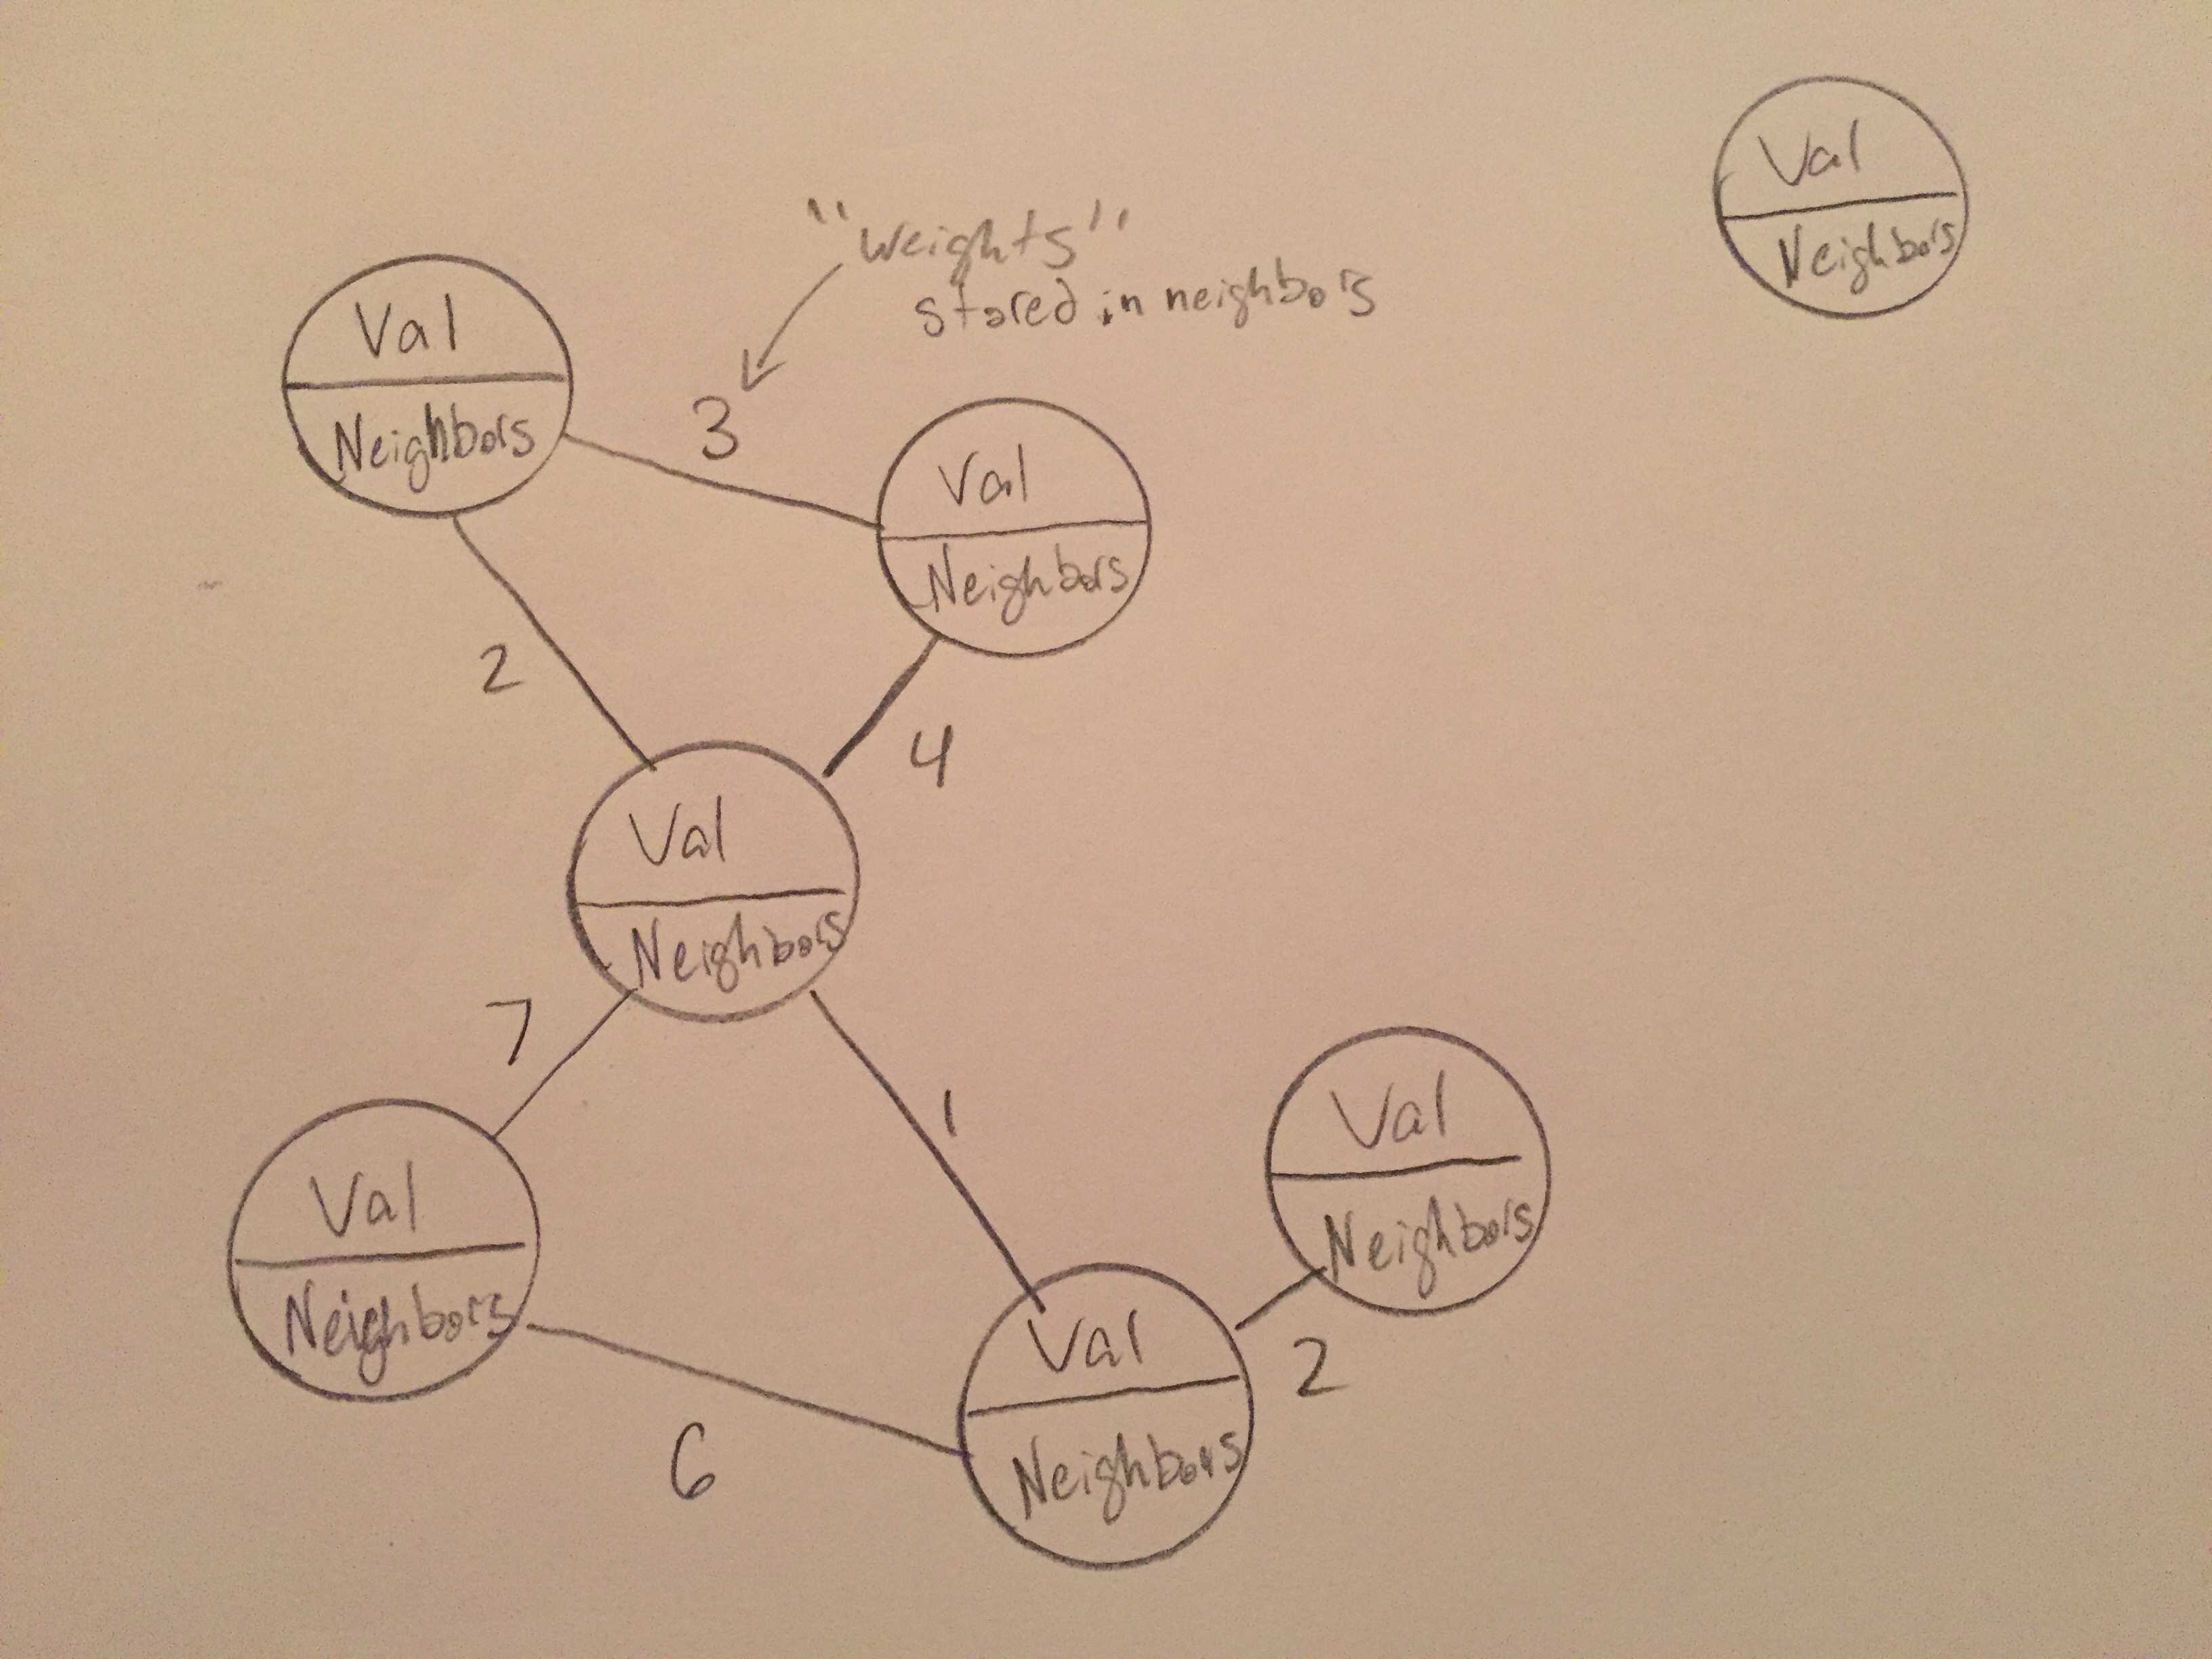 Val
Neighbors
"weights"
stored in neighbors
Val
Neighbors
3
Val
Neighbors
2
4
Val
Neighbors
7
1
Val
Neighbors
Val
Neighbors
2
Val
Neighbors
6